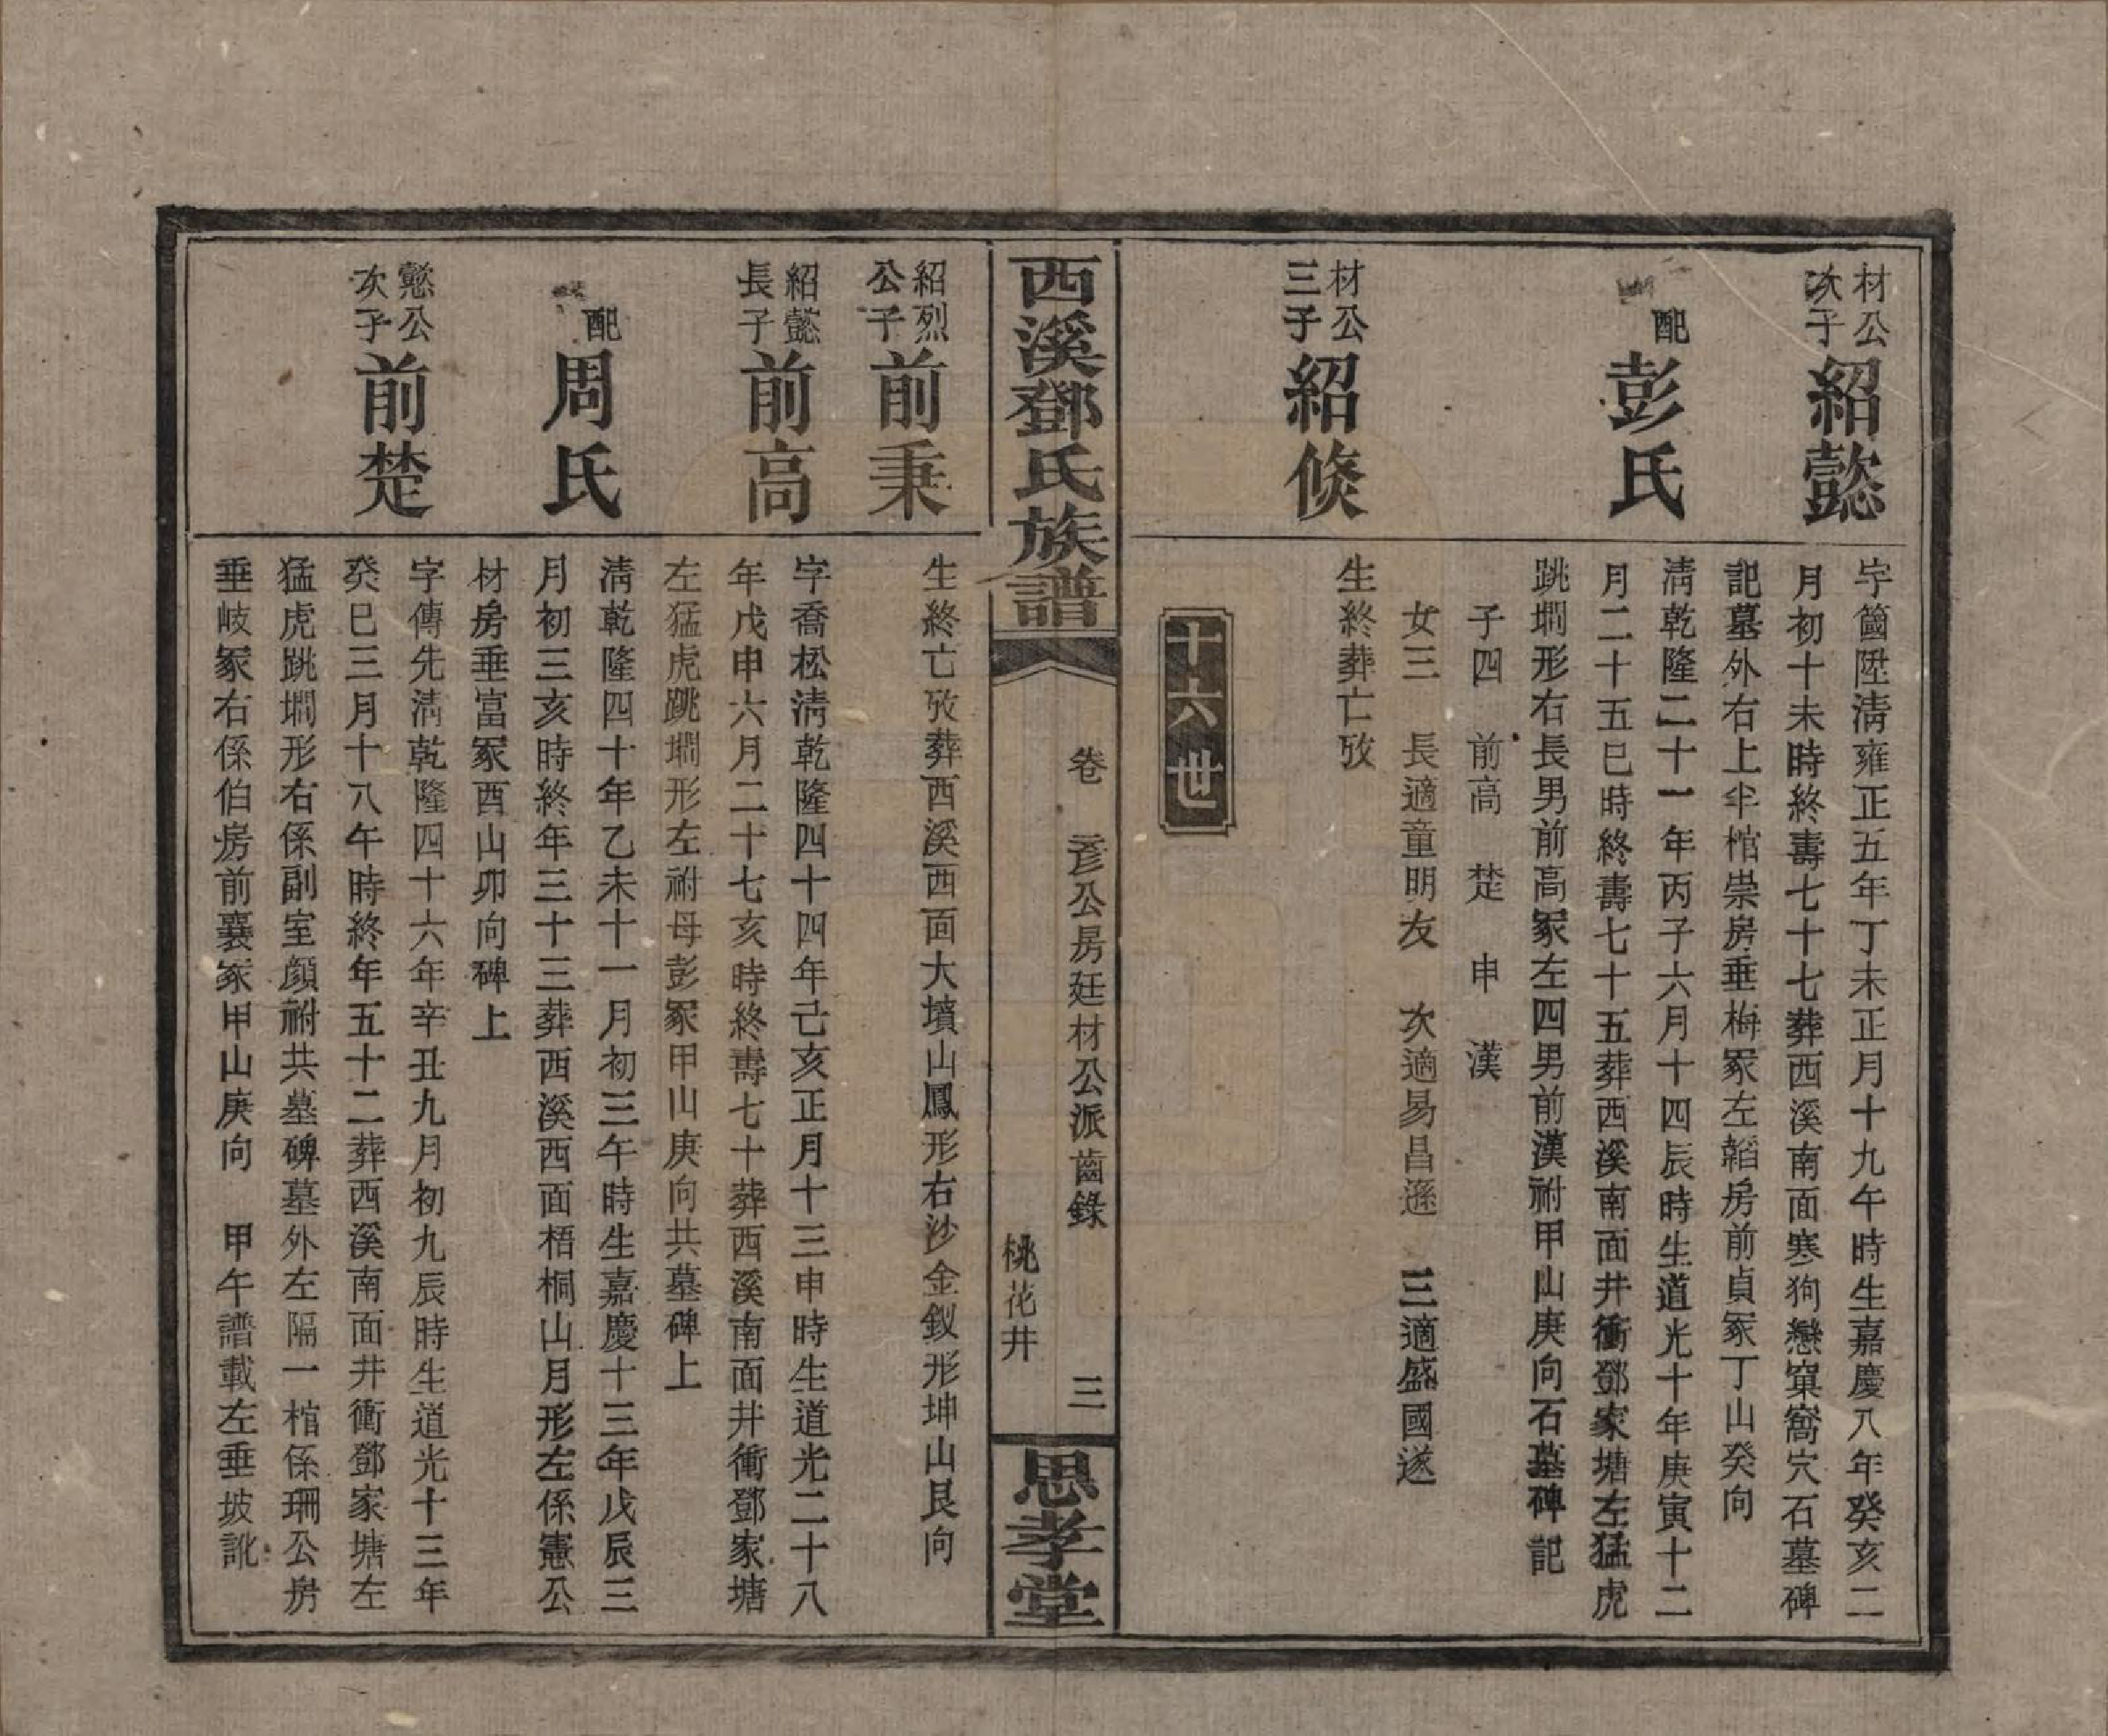 材公
次子
紹懿
字簠陞淸雍正五年丁未正月十九午時生嘉慶八年癸亥二
月初十未時終壽七十七葬西溪南面寒狗戀窠窩穴石墓碑
記墓外右上半棺崇房垂梅冢左韜房前貞冢丁山癸向
配
彭氏
淸乾隆二十一年丙子六月十四辰時生道光十年庚寅十二
月二十五巳時終壽七十五葬西溪南面井衝鄧家塘左猛虎
跳墹形右長男前高冢左四男前漢祔甲山庚向石墓碑記
子四 前高 楚 申 漢
女三 長適童明友 次適易昌遜 三適盛國遂
材公
三子
紹倐
生終葬亡攷
十六世
西溪鄧氏族譜
卷 彥公房廷材公派齒錄 三
桃花井
思孝堂
紹烈
公子
前秉
生終亡攷葬西溪西面大墳山鳳形右沙金釵形坤山艮向
紹懿
長子
前高
字喬松淸乾隆四十四年己亥正月十三申時生道光二十八
年戊申六月二十七亥時終壽七十葬西溪南面井衝鄧家塘
左猛虎跳墹形左祔母彭冢甲山庚向共墓碑上
配
周氏
淸乾隆四十年乙未十一月初三午時生嘉慶十三年戊辰三
月初三亥時終年三十三葬西溪西面梧桐山月形左係憲公
材房垂富冢酉山卯向碑上
懿公
次子
前楚
字傳先淸乾隆四十六年辛丑九月初九辰時生道光十三年
癸巳三月十八午時終年五十二葬西溪南面井衝鄧家塘左
猛虎跳墹形右係副室顔祔共墓碑墓外左隔一棺係珊公房
垂岐冢右係伯房前襄冢甲山庚向 甲午譜載左垂坡訛